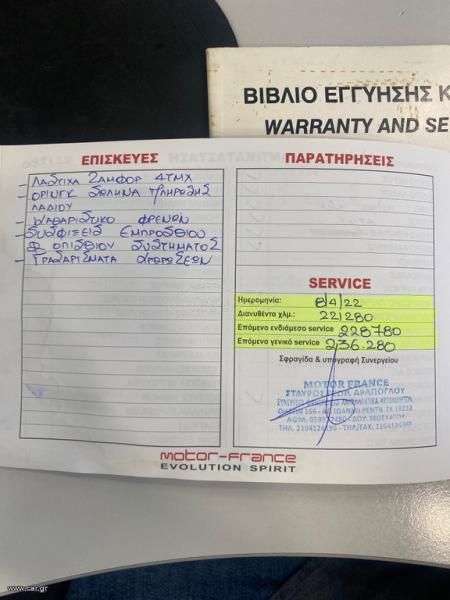 ΒΙΒΛΙΟ ΕΓΓΥΗΣΗΣ Κ
WARRANTY AND SE
ΕΠΙΣΚΕΥΕΣ
- ΛΑΣΤΙΧΑ ΖΑΜΦΟΡ 4ΤΜΧ
- ΟΡΙΝΓΚ ΣΩΛΗΝΑ ΠΛΗΡΩΣΗΣ
ΛΑΔΙΟΥ
- ΚΑΘΑΡΙΣΤΙΚΟ ΦΡΕΝΩΝ
- ΣΥΣΦΙΞΕΙΣ ΕΜΠΡΟΣΘΙΟΥ
ΟΠΙΣΘΙΟΥ ΣΥΣΤΗΜΑΤΟΣ
- ΓΡΑΣΑΡΙΣΜΑΤΑ ΑΡΘΡΩΣΕΩΝ
ΠΑΡΑΤΗΡΗΣΕΙΣ
SERVICE
Ημερομηνία: 8/4/22
Διανυθέντα χλμ.: 221280
Επόμενο ενδιάμεσο service 228780
Επόμενο γενικό service 236.280
Σφραγίδα & υπογραφή Συνεργείου
MOTOR FRANCE
ΣΤΑΥΡΟΣ ΓΕΩΡ. ΑΡΑΠΟΓΛΟΥ
166 - ΑΓ. ΙΩΑΝΝΗ ΡΕΝΤΗ Τ.Κ 18233
ΤΗΛ. 2104124196 - ΤΗΛ/FAX:
motor-france
EVOLUTION SPIRIT
www.car.gr